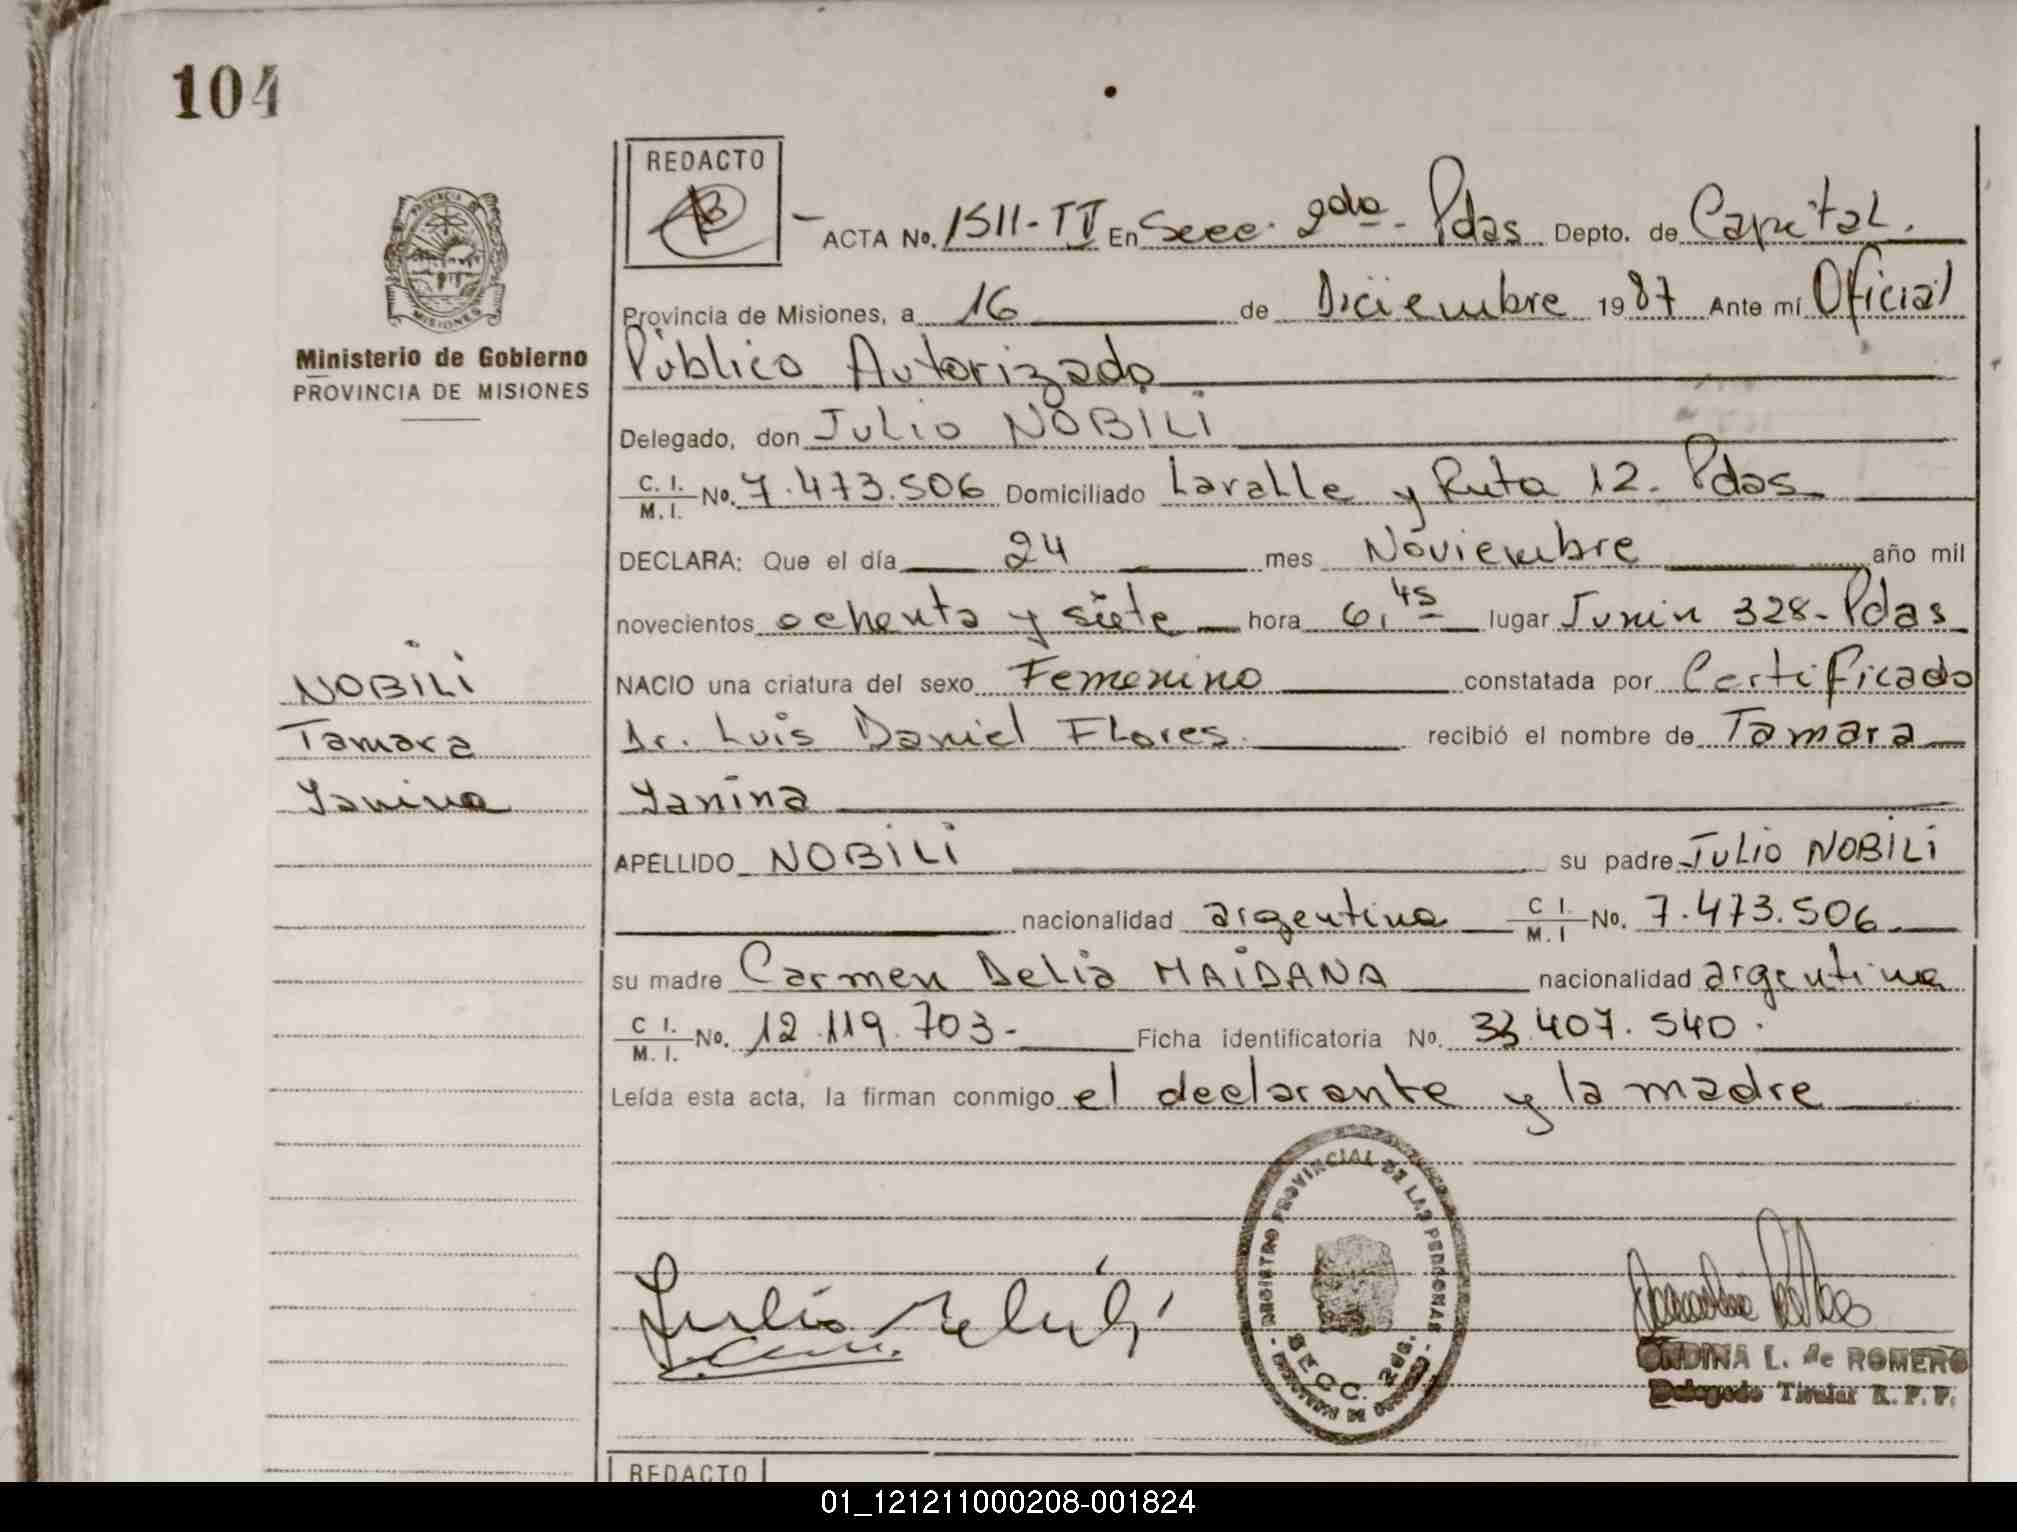 104
PROVINCIA DE
MISIONES
Ministerio de Gobierno
PROVINCIA DE MISIONES
NOBILI
Tamara
Yanina
REDACTO
ACTA No. 1511-TI En Secc. 2da - Pdas Depto. de Capital.
Provincia de Misiones, a 16 de Diciembre 1987 Ante mí Oficial
Público Autorizado
Delegado, don Julio NOBILI
C. I. M. I. No. 7.473.506 Domiciliado Lavalle y Ruta 12 - Pdas
DECLARA: Que el día 24 mes Noviembre año mil
novecientos ochenta y siete hora 6,45 lugar Junin 328 - Pdas
NACIO una criatura del sexo Femenino constatada por Certificado
Dr. Luis Daniel Flores. recibió el nombre de Tamara
Yanina
APELLIDO NOBILI su padre Julio NOBILI
nacionalidad argentina C I. M. I No. 7.473.506
su madre Carmen Delia MAIDANA nacionalidad argentina
C I. M. I. No. 12.119.703 - Ficha identificatoria No. 33.407.540.
Leída esta acta, la firman conmigo el declarante y la madre
REGISTRO PROVINCIAL DE LAS PERSONAS
SECC. 2da.
Julio
ONDINA L. de ROMERO
Delegado Titular R. P. P.
REDACTO
01_121211000208-001824